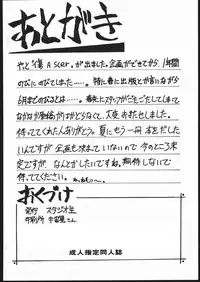 あとがき
やっと獲A SCER.が出ました。企画ができてから1年間
のびにのびてしまった……。特に春に出版とか言いながら
6月までのびるとは……。春先にスタッフがごたごたしてしまって
なかなか原稿があがらなくて、大変お待たせしました。
待っててくれた人ありがとう。夏にもう一冊本をだした
いんですが企画も決まっていないので今のところ未
定ですが、なんとかしたいですね。期待しないで
待っててください。
おくづけ
発行 スタジオ
印刷所 さん
成人指定同人誌